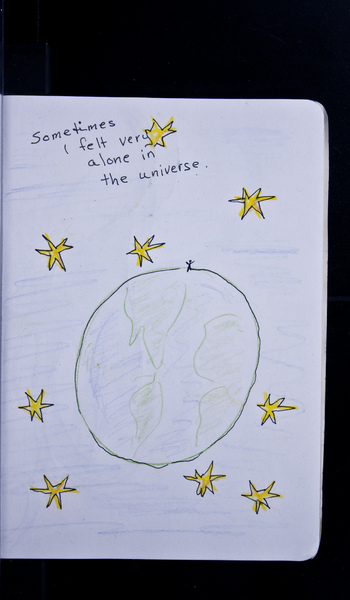 Sometimes
I felt very
alone in
the universe.